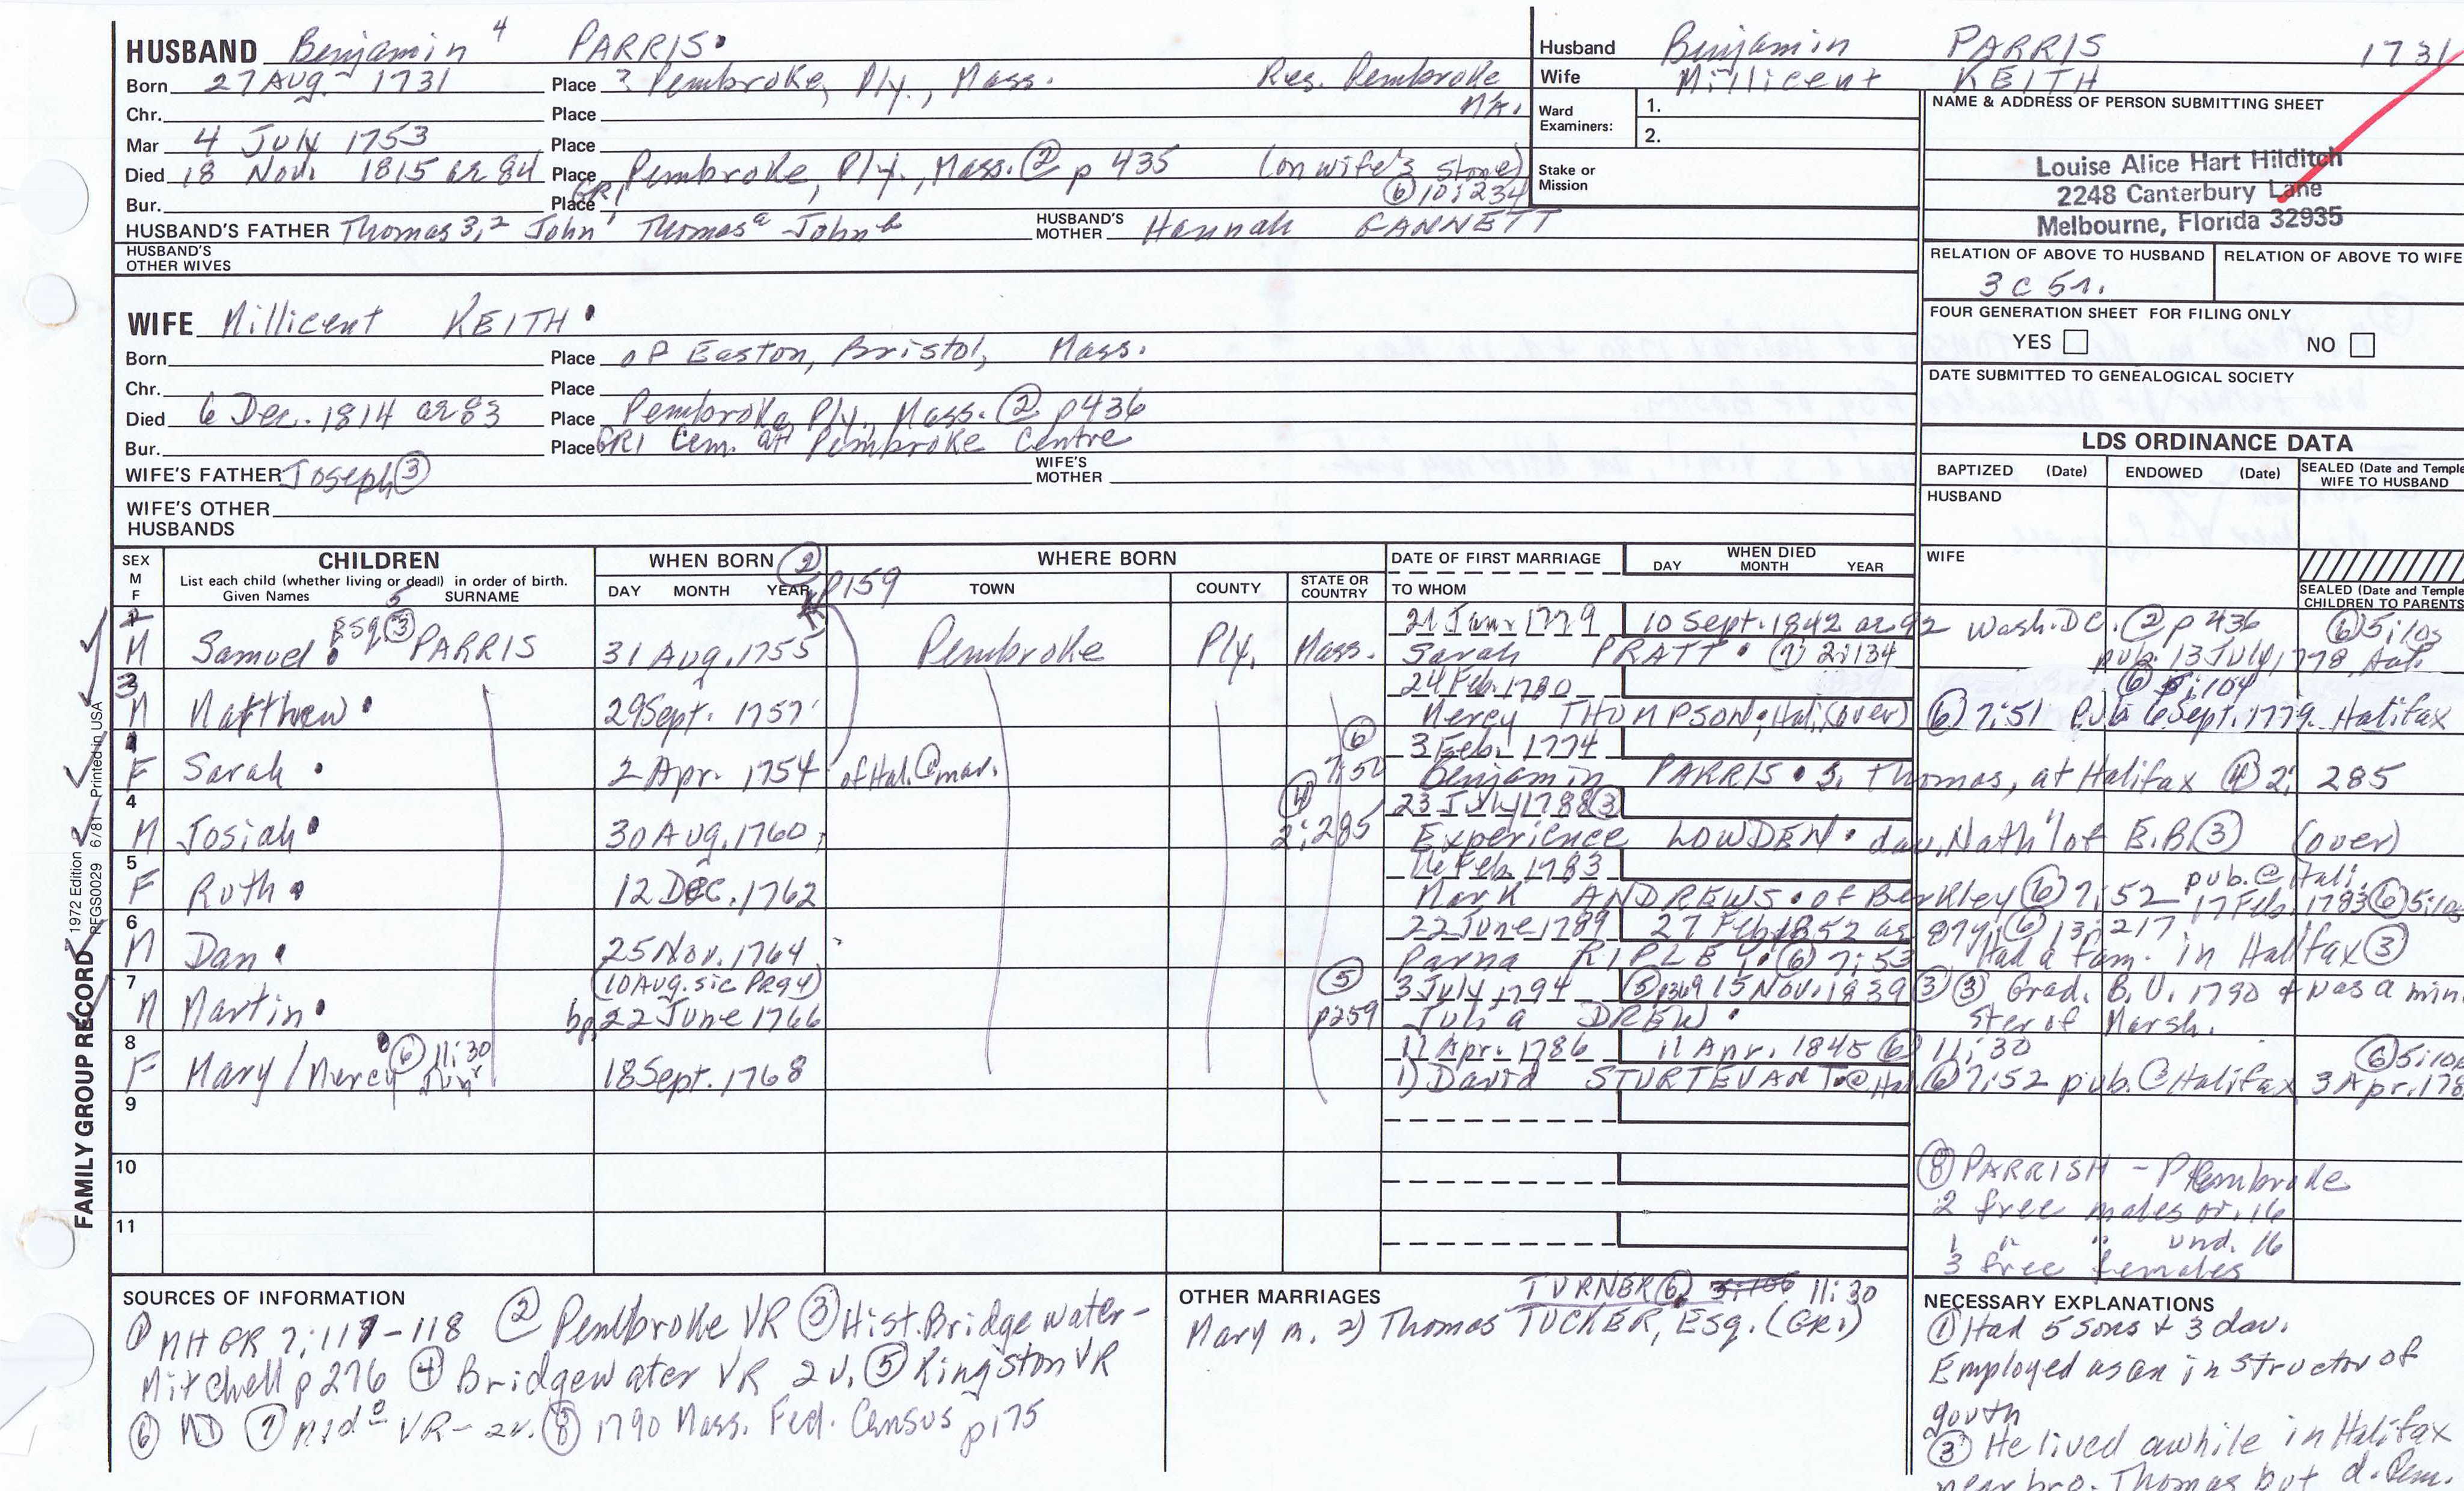 HUSBAND Benjamin 4 PARRIS
Born 27 Aug. 1731 Place ? Pembroke, Ply., Mass. Res. Pembroke
Chr. Place
Mar 4 July 1753 Place
Died 18 Nov. 1815 ae 84 Place Pembroke, Ply., Mass. ② p 435 (on wife's stone)
Bur. Place GR1 ⑥ 10:234
HUSBAND'S FATHER Thomas 3, 2 John 1 Thomas a John b HUSBAND'S MOTHER Hannah GANNETT
HUSBAND'S OTHER WIVES
WIFE Millicent KEITH
Born Place of Easton, Bristol, Mass.
Chr. Place
Died 6 Dec. 1814 ae 83 Place Pembroke, Ply., Mass. ② p436
Bur. Place GR1 Cem. at Pembroke Centre
WIFE'S FATHER Joseph ③ WIFE'S MOTHER
WIFE'S OTHER HUSBANDS
Husband Benjamin PARRIS 1731
Wife Millicent KEITH
Ward Examiners: 1.
2.
Stake or Mission
NAME & ADDRESS OF PERSON SUBMITTING SHEET
Louise Alice Hart Hilditch
2248 Canterbury Lane
Melbourne, Florida 32935
RELATION OF ABOVE TO HUSBAND RELATION OF ABOVE TO WIFE
3 c 5r.
FOUR GENERATION SHEET FOR FILING ONLY
YES NO
DATE SUBMITTED TO GENEALOGICAL SOCIETY
LDS ORDINANCE DATA
BAPTIZED (Date) ENDOWED (Date) SEALED (Date and Temple) WIFE TO HUSBAND
HUSBAND
WIFE
SEALED (Date and Temple) CHILDREN TO PARENTS
SEX M F CHILDREN WHEN BORN ② p159 WHERE BORN DATE OF FIRST MARRIAGE WHEN DIED
List each child (whether living or dead) in order of birth.
Given Names SURNAME DAY MONTH YEAR TOWN COUNTY STATE OR COUNTRY TO WHOM DAY MONTH YEAR
2 M Samuel Esq. ③ 5 PARRIS 31 Aug. 1755 Pembroke Ply. Mass. 1779 10 Sept. 1842 ae 92 Wash. D.C. ② p 436 ⑥ 5:105
Sarah PRATT ⑦ 2:134 pub. 13 July 1778 Hal.
3 M Matthew 29 Sept. 1757 24 Feb. 1780 ⑥ 5:104
Mercy THOMPSON, Hal. (over) ⑥ 7:51 pub. 6 Sept. 1779 Halifax
1 F Sarah 2 Apr. 1754 of Hal. @ mar. ⑥ 7:50 3 Feb. 1774
Benjamin PARRIS s. Thomas, at Halifax ④ 2: 285
4 M Josiah 30 Aug. 1760 ④ 2:285 23 July 1788 ③
Experience LOWDEN dau. Nath'l of E.B. ③ (over)
5 F Ruth 12 Dec. 1762 Feb. 1783
Mark ANDREWS of Berkley ⑥ 7:52 pub. @ Hali. 17 Feb. 1783 ⑥ 5:105
6 M Dan 25 Nov. 1764 22 June 1789 27 Feb. 1852 ae 87y. ⑥ 13:217
Parna RIPLEY ⑥ 7:53 Had a fam. in Halifax ③
7 M Martin (10 Aug. sic PR94) bp. 22 June 1766 ⑤ p259 3 July 1794 ⑤ p369 15 Nov. 1839 ③ ③ Grad. B.U. 1790 & was a min
Julia DREW ster of Marsh.
8 F Mary / Mercy ⑥ 11:30 Junr 18 Sept. 1768 Apr. 1786 11 Apr. 1845 ⑥ 11:30 ⑥ 5:105
1) David STURTEVANT @ Hal. ⑥ 7:52 pub. @ Halifax 3 Apr. 178
9
10
11
⑧ PARRISH - Pembroke
2 free males ov. 16
1 " " und. 16
3 free females
FAMILY GROUP RECORD 1972 Edition PFGS0029 6/81 Printed in USA
SOURCES OF INFORMATION
① NHGR 7:117-118 ② Pembroke VR ③ Hist. Bridgewater-
Mitchell p 276 ④ Bridgewater VR 2 v. ⑤ Kingston VR
⑥ MD ⑦ Mido VR - 2 v. ⑧ 1790 Mass. Fed. Census p175
OTHER MARRIAGES TURNER ⑥ 11:30
Mary m. 2) Thomas TUCKER, Esq. (GR1)
NECESSARY EXPLANATIONS
① Had 5 sons & 3 dau.
Employed as an instructor of
youth
③ He lived awhile in Halifax
near bro. Thomas but d. Pem.